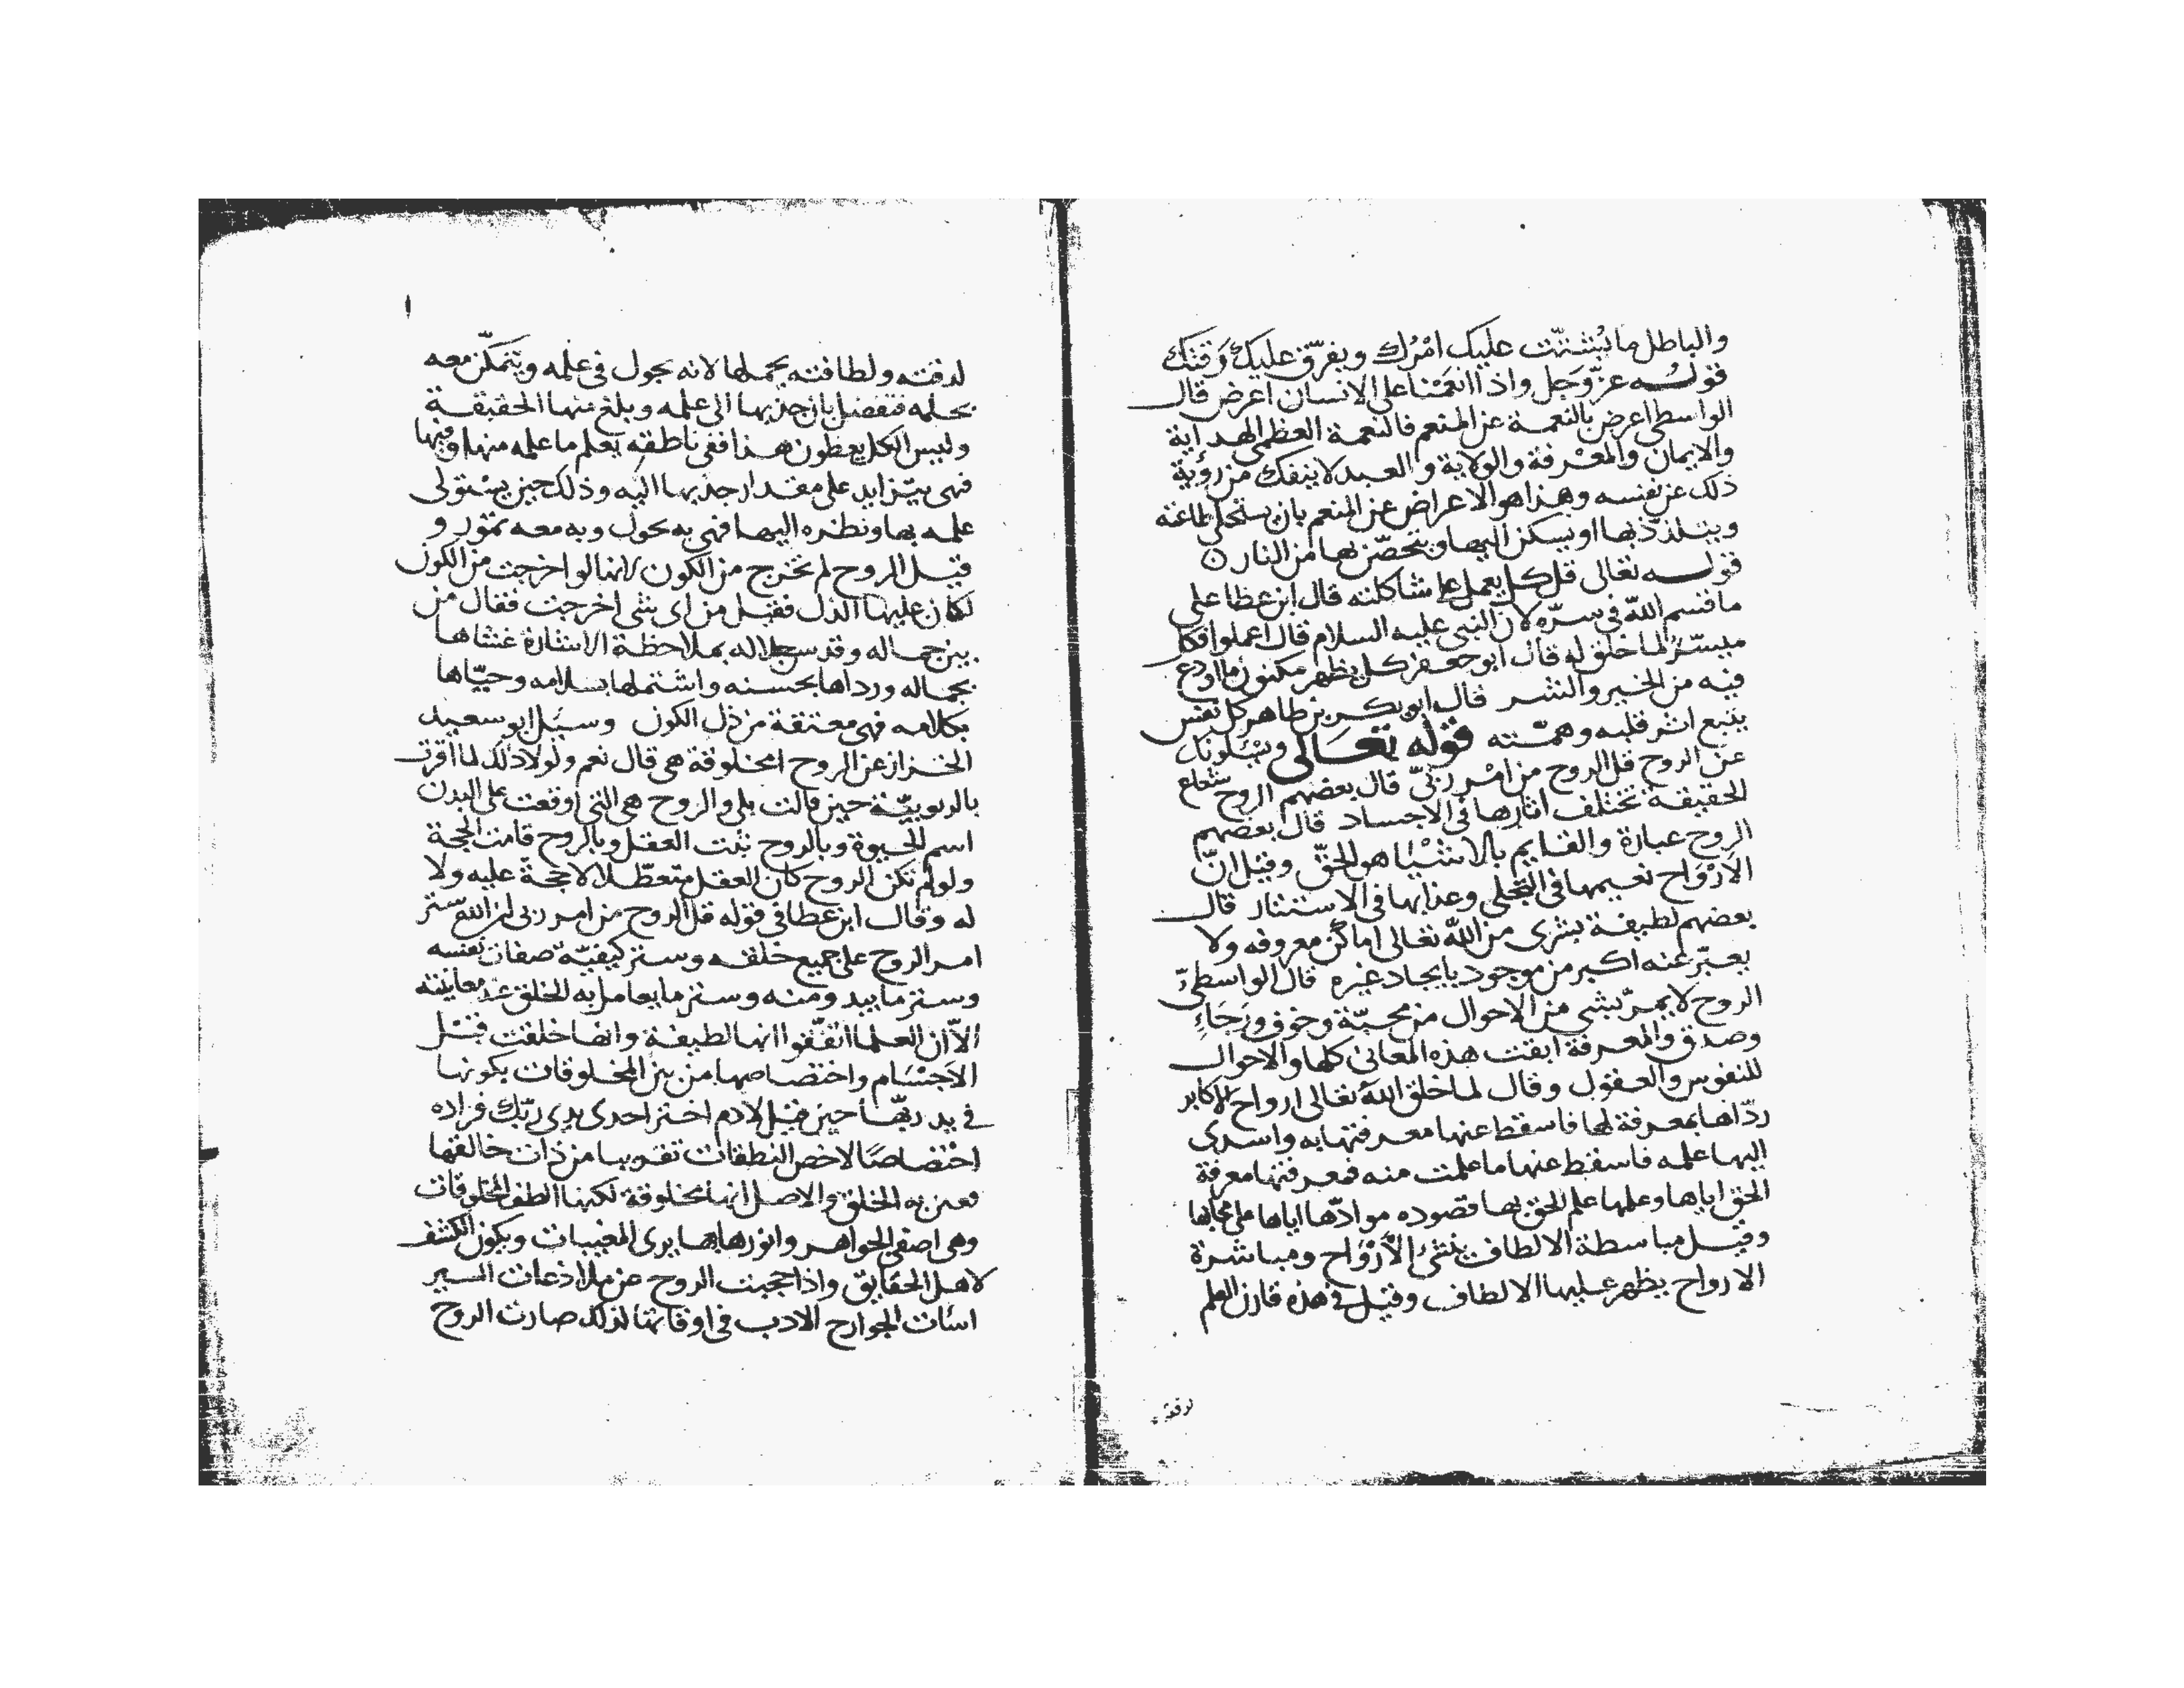 والباطل ما يُشتّت عليك امْرُك ويفرّق عليك وَقتك
قوله عزّ وَجل واذا انعَمْنا على الانسان اعرض قال
الواسطى اعرض بالنعمة عن المنعم فالنعمة العظمى الهداية
والايمان والمعْرفة والولاية والعبد لا ينفك من رؤية
ذلك عن نفسه وهذا هو الاعراض عن المنعم بان يستحلى طاعته
ويتلذّذ بها او يسكن اليها ويتحصّن بها من النار
قوله تعالى قل كل يعمل على شاكلته قال ابن عطا على
ما قسم اللّه فى سرّه لان النبى عليه السلام قال اعملوا فكل
ميسّر لما خلق له قال ابو جعفر كل يظهر مكنون ما اودع
فيه من الخير والشر قال ابو بكر بن طاهر كل نفس
يتبع اثر قلبه وهمّته قوله تعَالى ويسْئلونك
عن الروح قل الروح من امْر ربّى قال بعضهم الروح شعاع
الحقيقة تختلف اثارها فى الاجساد قال بعضهم
الروح عبارة والقايم بالاشْيا هو الحقّ وقيل انّ
الاَرْوَاح نعيمها فى التجلى وعذابها فى الاستتار قال
بعضهم لطيفة تسرى من اللّه تعالى اماكن معروفه ولا
يعبّر عنه اكبر من موجود بايجاد غيره قال الواسطىّ
الروح لا يمرّ بشى من الاحوال من محبّة وخوف ورَجَاءٍ
وصدق والمعرفة ابقت هذه المعانى كلها والاحوال
للنفوس والعقول وقال لما خلق اللّه تعالى ارواح الاكابر
ردّاها بمعرفة لها فاسقط عنها معرفتها به واسدى
اليها علمه فاسقط عنها ما علمت منه فمعرفتها معرفة
الحق اياها وعلمها علم الحق بها قصوده موادّها اياها على محابها
وقيل مباسطة الالطاف ينشئ الاَرْوَاح ومباشرة
الارواح يظهر عليها الالطاف وقيل فى هذه قارن العلم
لدقته ولطافته يحملها لانه يجول فى علمه ويتمكّن معه
بحلمه فتفضل بان جذبها الى علمه وبلغ منها الحقيقة
وليس الكل يعطون هذا ففى ناطقه بعلم ما علمه منها وفيها
فهى يتزايد على مقدار جذبها اليه وذلك حين يستولى
علمه بها ونظره اليها فهى به تحول وبه معه تثور و
قيل الروح لم تخرج من الكون لانها لو اخرجت من الكون
لكان عليها الذل فقيل من اى شى اخرجت فقال من
بين جماله وقدس جلاله بملاحظة الاشارة غشاها
بجماله ورداها بحسنه واشتملها بسلامه وحيّاها
بكلامه فهى معتقة من ذل الكون وسئل ابو سعيد
الخراز عن الروح امخلوقة هى قال نعم ولولا ذلك لما اقرت
بالربوبيّة حين قالت بلى والروح هى التى اوقعت على البدن
اسم الحيوة وبالروح ثبت العقل وبالروح قامت الحجة
ولو لم تكن الروح كان العقل متعطّلا لا حجة عليه ولا
له وقال ابن عطا فى قوله قل الروح من امر ربى لان اللّه ستر
امر الروح على جميع خلقه وستر كيفيّة صفات نفسه
وستر ما يبد ومنه وستر ما يعامل به الخلق عند معاينته
الاّ ان العلما اتفّقوا انها لطيفة وانها خلقت قبْل
الاَجْسَام واختصاصها من بين المخلوقات بكونها
فى يد ربّها حين قيل لادم اختر احدى يدى ربّك فزاده
اختصاصًا لاخص النطقات تقريبا من ذات خالقها
فعنى به الخلق والاصل انها مخلوقة لكنها الطف المخلوقات
وهى اصفى الجواهر وانورها بها يرى المغيبات ويكون الكشف
لاهل الحقايق واذا حجبت الروح عن ملاذعات السير
اسات الجوارح الادب فى اوقاتها لذلك صارت الروح